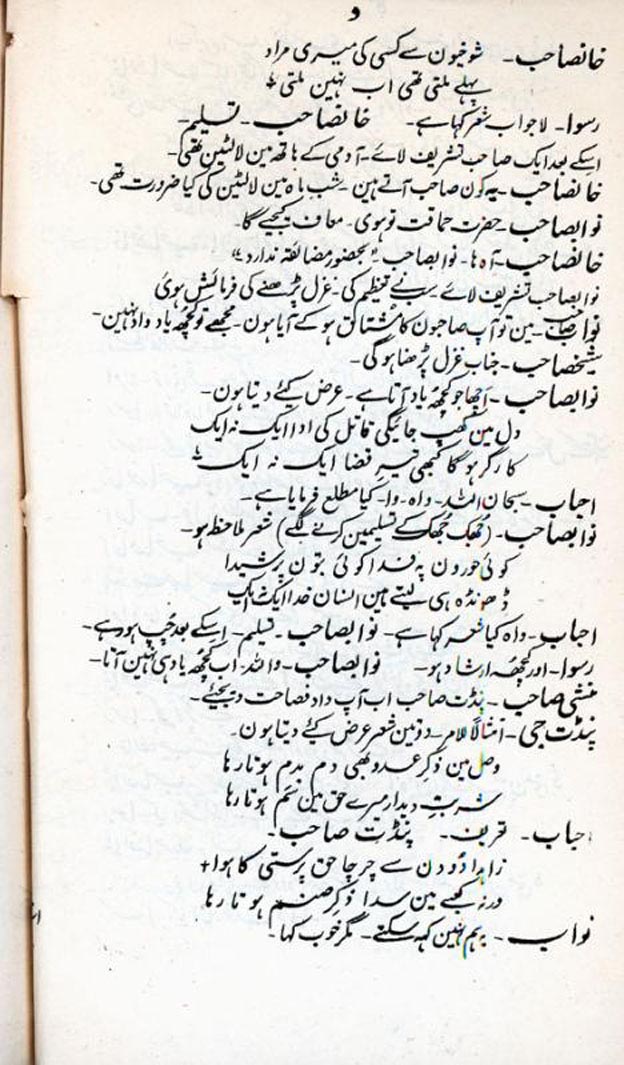 و
خانصاحب۔ شوخیون سے کسی کی میری مراد
پہلے ملتی تھی اب نہین ملتی
رسوا۔ لاجواب شعر کہا ہے۔ خانصاحب۔ تسلیم۔
اسکے بعد ایک صاحب تشریف لائے۔ آدمی کے ہاتھ مین لالٹین تھی۔
خانصاحب۔ یہ کون صاحب آتے ہین۔ شب ماہ مین لالٹین کی کیا ضرورت تھی۔
نوابصاحب۔ حضرت حماقت تو ہوی۔ معاف کیجیے گا۔
خانصاحب۔ آہ ہا۔ نوابصاحب۔ "بحضور مضائقہ ندارد"
نوابصاحب تشریف لائے۔ سبنے تعظیم کی۔ غزل پڑھنے کی فرمائش ہوئی
نوابصاحب۔ مین تو آپ صاحبون کا مشتاق ہو کے آیا ہون۔ مجھے تو کچھ یاد واد نہین۔
شیخصاحب۔ جناب غزل پڑھنا ہوگی۔
نوابصاحب۔ اچھا جو کچھ یاد آتا ہے۔ عرض کیئے دیتا ہون۔
دل مین کھب جائیگی قاتل کی ادا ایک نہ ایک
کارگر ہوگا کبھی تیر قضا ایک نہ ایک
احباب۔ سبحان اللہ۔ واہ۔ وا۔ کیا مطلع فرمایا ہے۔
نوابصاحب۔ (جھک جھک کے تسلیمین کرنے لگے) شعر ملاحظہ ہو۔
کوئی حورون پہ فدا کوئی بتون پر شیدا
ڈھونڈہ ہی لیتے ہین انسان خدا ایک نہ ایک
احباب۔ واہ کیا شعر کہا ہے۔ نوابصاحب۔ تسلیم۔ اسکے بعد چپ ہو رہے۔
رسوا۔ اور کچھ ارشاد ہو۔ نوابصاحب۔ واللہ اب کچھ یاد ہی نہین آتا۔
منشی صاحب۔ پنڈت صاحب اب آپ داد فصاحت دیجیئے۔
پنڈت جی۔ امتثالاً للامر۔ دو تین شعر عرض کیئے دیتا ہون۔
وصل مین ذکر عدو بھی دم بدم ہوتا رہا
شربت دیدار میرے حق مین سم ہوتا رہا
احباب۔ تعریف۔ پنڈت صاحب۔
زاہدا دو دن سے چرچا حق پرستی کا ہوا
ورنہ کعبے مین سدا ذکر صنم ہوتا رہا
نواب۔ یہ ہم نہین کہہ سکتے۔ مگر خوب کہا۔